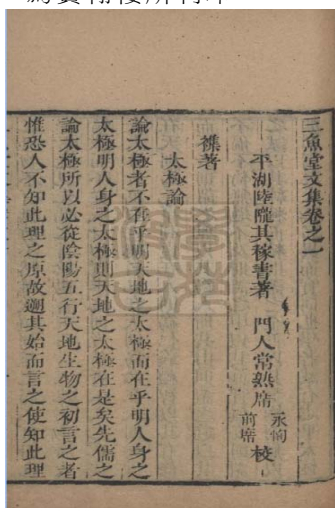 三魚堂文集卷之一
平湖陸隴其稼書著 門人常熟席永恂前席校
襍著
太極論
論太極者不在乎明天地之太極而在乎明人身之
太極明人身之太極則天地之太極在是矣先儒之
論太極所以必從陰陽五行天地生物之初言之者
惟恐人不知此理之原故遡其始而言之使知此理